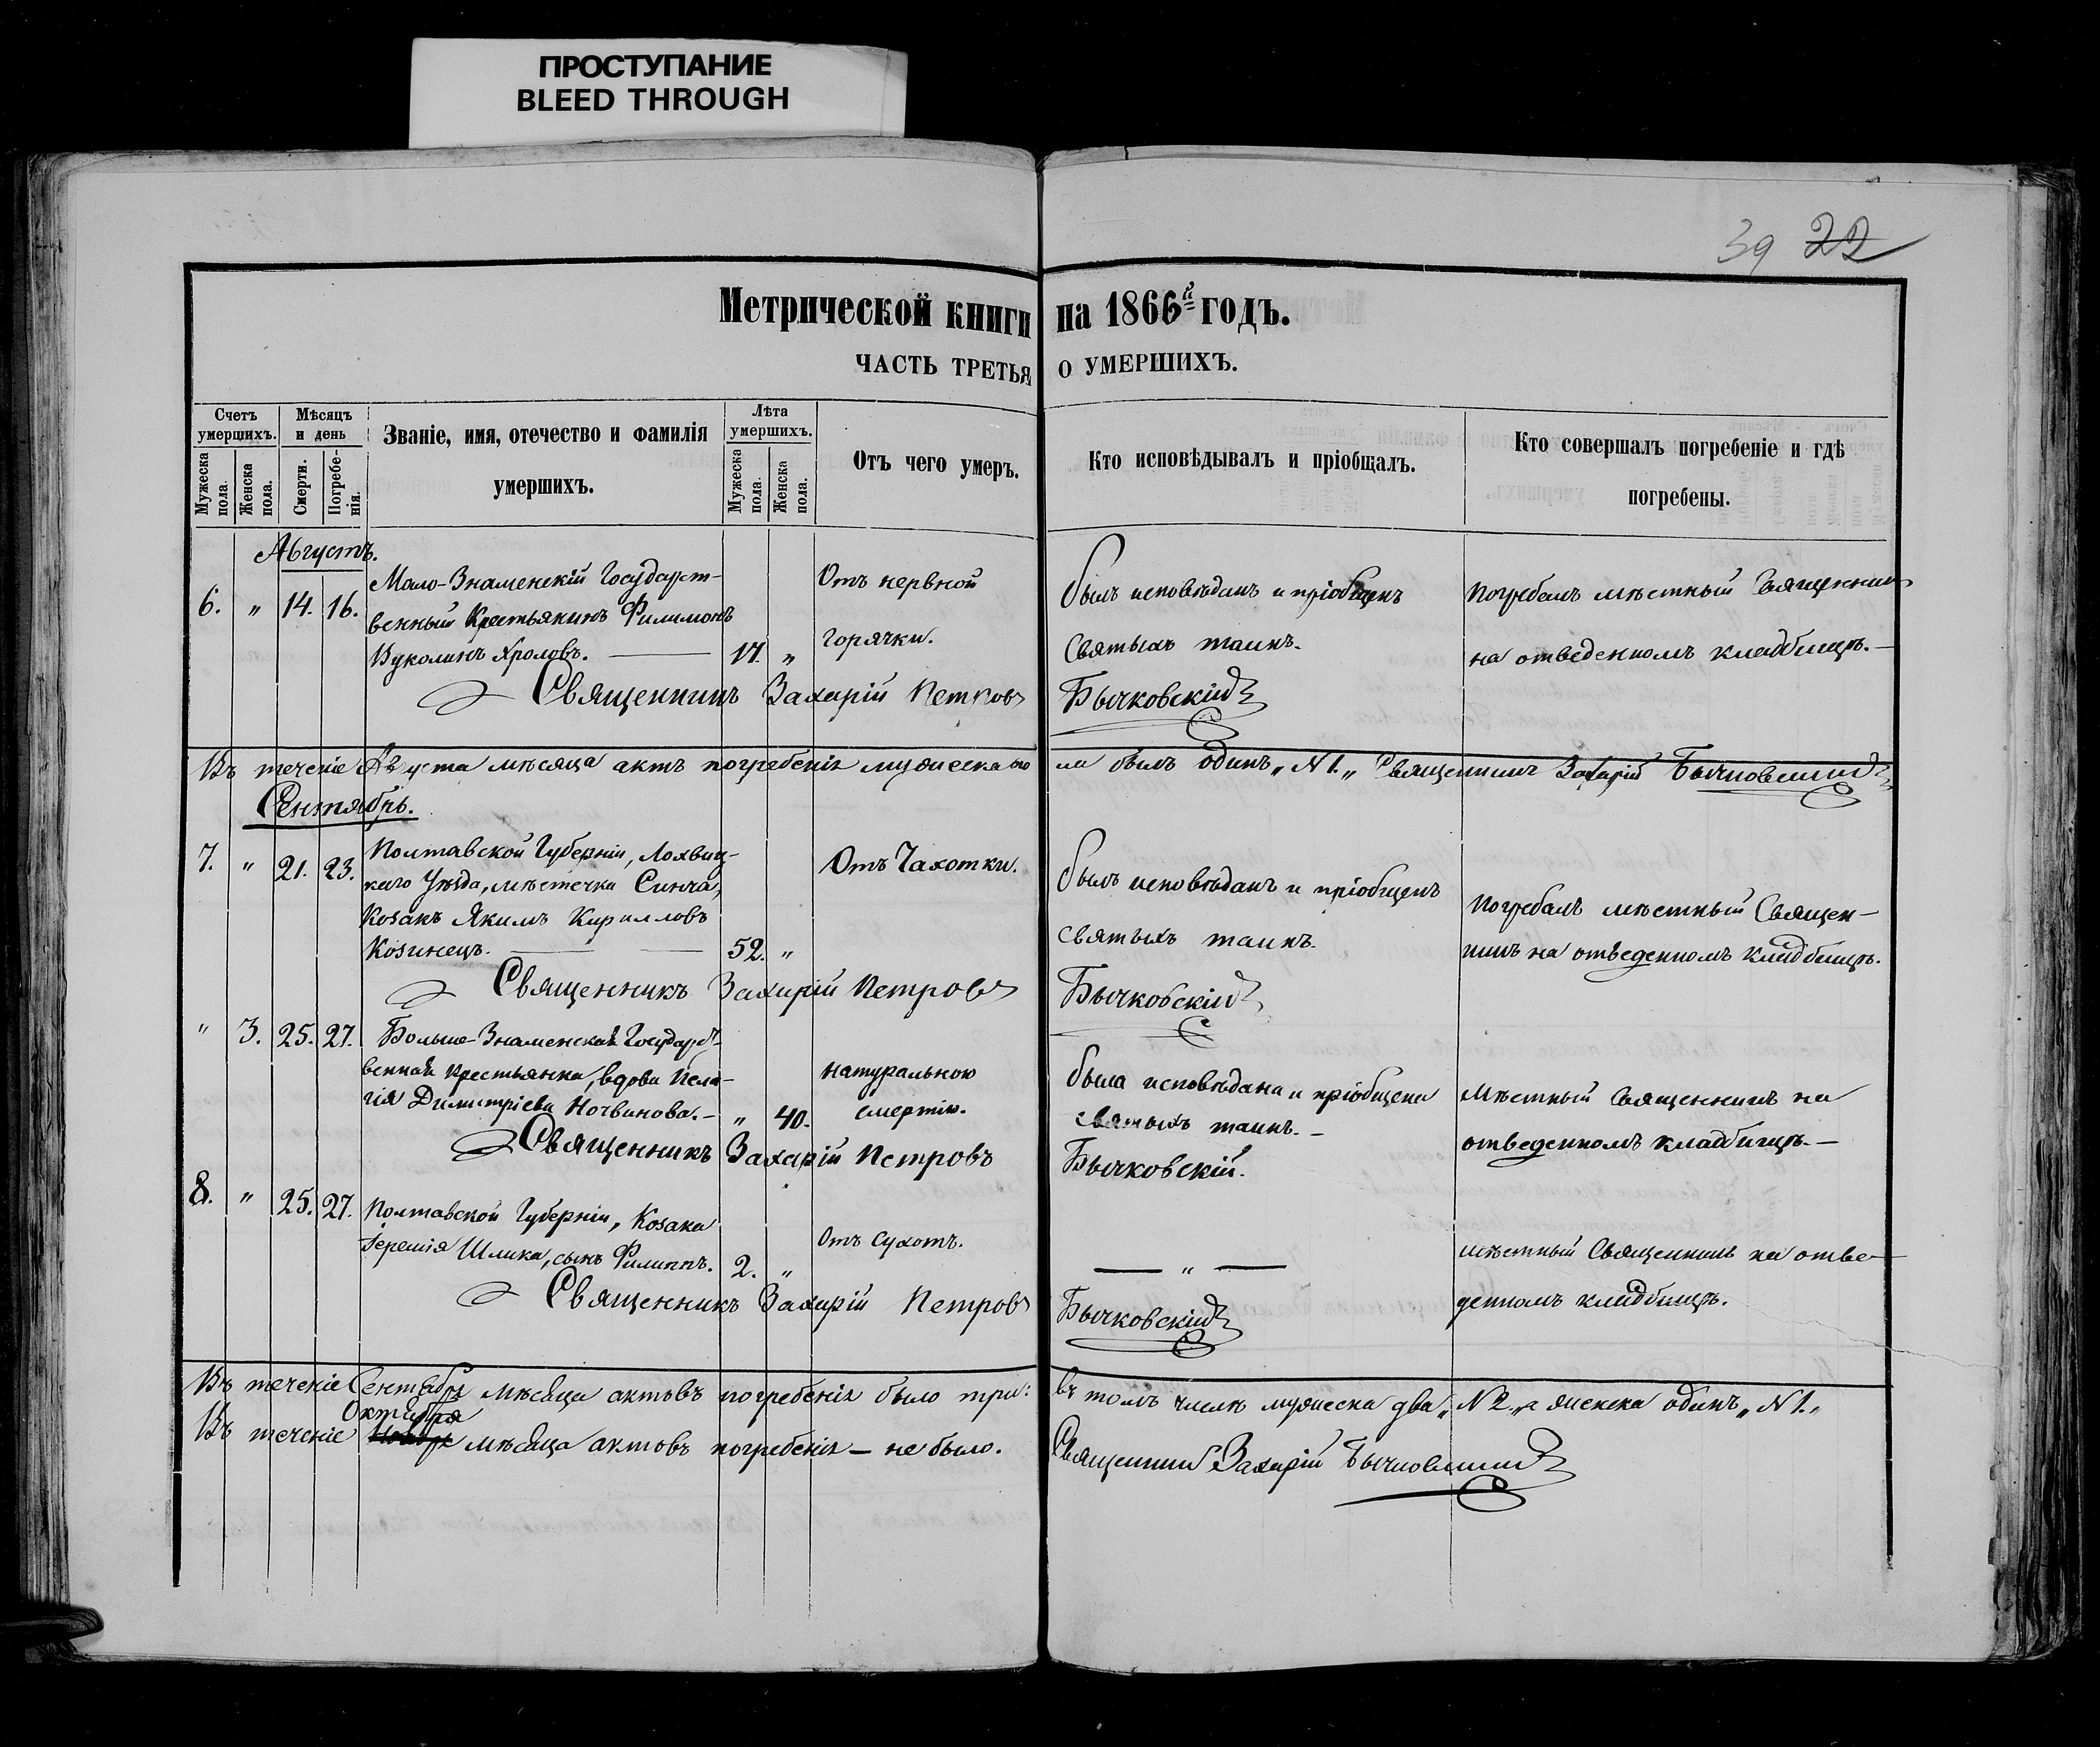 ПРОСТУПАНИЕ
BLEED THROUGH
39 22
Метрической книги на 1866й годъ.
ЧАСТЬ ТРЕТЬЯ О УМЕРШИХЪ.
Счетъ умершихъ.
Мѣсяцъ и день
Званіе, имя, отечество и фамилія умершихъ.
Лѣта умершихъ.
Отъ чего умеръ.
Кто исповѣдывалъ и пріобщалъ.
Кто совершалъ погребеніе и гдѣ погребены.
Мужеска пола.
Женска пола.
Смерти.
Погребе-
нія.
Мужеска пола.
Женска пола.
Августъ.
6. " 14. 16.
Мало-Знаменскій Государст-
венный Крестьянинъ Филимонъ
Вуколинъ Хроловъ. 17. "
Отъ нервной
горячки.
былъ исповѣданъ и пріобщенъ
Святыхъ таинъ.
Погребалъ мѣстный Священникъ
на отведенномъ кладбищѣ.
Священникъ Захарій Петровъ Бычковскій
Въ теченіе Августа мѣсяца актъ погребенія мужеска по
ла былъ одинъ „N 1.„ Священникъ Захарій Бычковскій
Сентябрь.
7. " 21. 23.
Полтавской Губерніи, Лохвиц-
каго Уѣзда, мѣстечка Синча,
Козакъ Якимъ Кирилловъ
Козинецъ. 52. "
Отъ Чахотки.
былъ исповѣданъ и пріобщенъ
святыхъ таинъ.
Погребалъ мѣстный Священ-
никъ на отведенномъ кладбищѣ.
Священникъ Захарій Петровъ Бычковскій
" 3. 25. 27.
Больше-Знаменская Государст-
венная Крестьянка, вдова Пела-
гія Димитріева Ночвинова. " 40.
натуральною
смертію.
была исповѣдана и пріобщена
святыхъ таинъ.
Мѣстный Священникъ на
отведенномъ кладбищѣ.
Священникъ Захарій Петровъ Бычковскій.
8. " 25. 27.
Полтавской Губерніи, Козака
Іеремія Шлика, сынъ Филиппъ. 2. "
Отъ Сухотъ.
— " —
мѣстный Священникъ на отве-
денномъ кладбищѣ.
Священникъ Захарій Петровъ Бычковскій
Въ теченіе Сентября мѣсяца актовъ погребенія было три:
въ томъ числѣ мужеска два „N 2.„ а женска одинъ „N 1.„
Октября
Въ теченіе мѣсяца актовъ погребенія — не было.
Священникъ Захарій Бычковскій